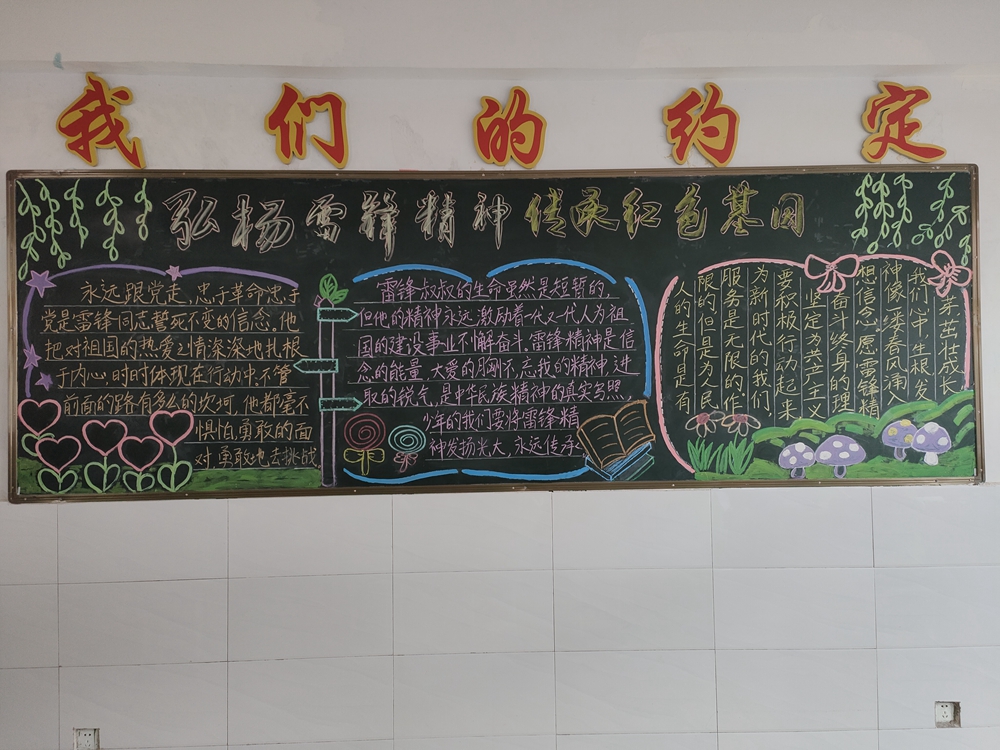 我们的约定
弘杨雷锋精神传承红色基因
永远跟党走，忠于革命忠于
党是雷锋同志誓死不变的信念。他
把对祖国的热爱之情深深地扎根
于内心，时时体现在行动中，不管
前面的路有多么的坎坷，他都毫不
惧怕，勇敢的面
对，勇敢地去挑战
雷锋叔叔的生命虽然是短暂的，
但他的精神永远激励着一代又一代人为祖
国的建设事业不懈奋斗，雷锋精神是信
念的能量，大爱的胸怀，忘我的精神，进
取的锐气，是中华民族精神的真实写照，
少年的我们要将雷锋精
神发扬光大，永远传承
人的生命是有
限的但是为人民
服务是无限的作
为新时代的我们
要积极行动起来
坚定为共产主义
奋斗终身的理
想信念愿雷锋精
神像一缕春风涌入
我们心中生根发
芽茁壮成长